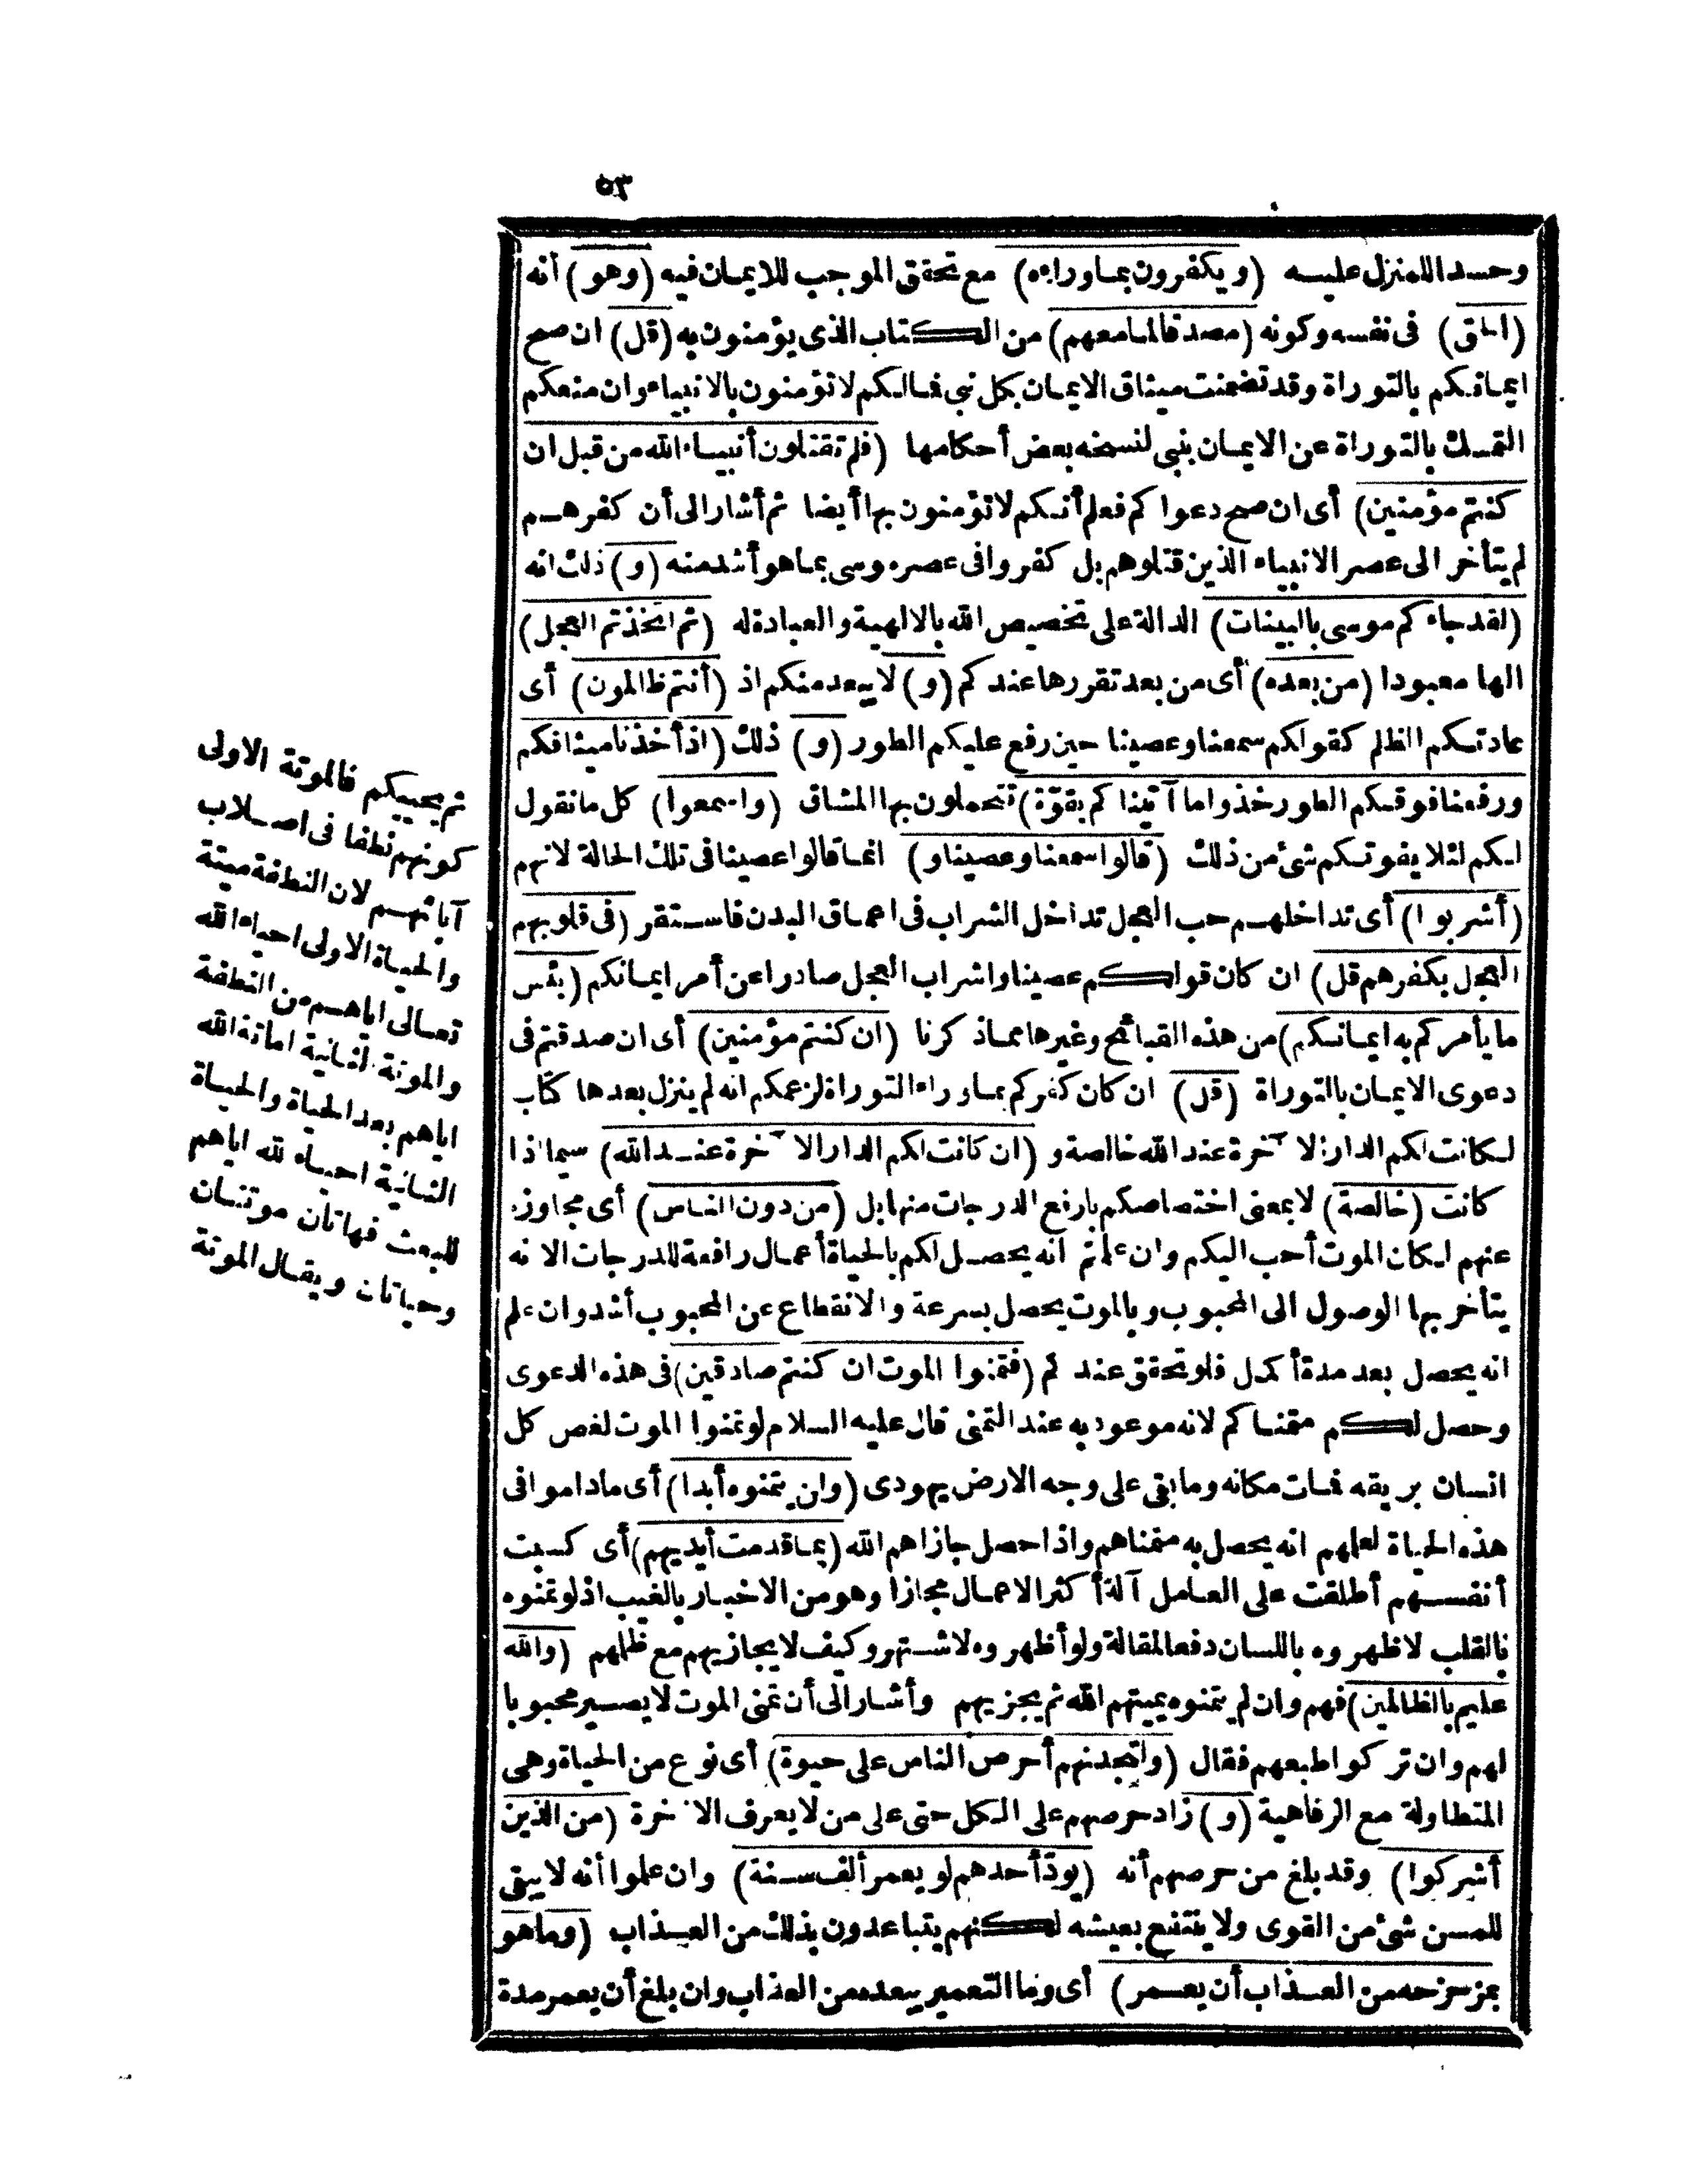 ٥٣
وحسد المنزل عليه (ويكفرون بما وراءه) مع تحقق الموجب للايمان فيه (وهو) أنه
(الحق) فى نفسه وكونه (مصدقا لما معهم) من الكتاب الذى يؤمنون به (قل) ان صح
ايمانكم بالتوراة وقد تضمنت ميثاق الايمان بكل نبى فما لكم لا تؤمنون بالانبياء وان منعكم
التمسك بالتوراة عن الايمان بنبى لنسخه بعض أحكامها (فلم تقتلون أنبياء الله من قبل ان
كنتم مؤمنين) أى ان صح دعواكم فعلم أنكم لا تؤمنون بها أيضا ثم أشار الى أن كفرهم
لم يتأخر الى عصر الانبياء الذين قتلوهم بل كفروا فى عصر موسى بما هو أشد منه (و) ذلك انه
(لقد جاءكم موسى بالبينات) الدالة على تخصيص الله بالالهية والعبادة له (ثم اتخذتم العجل)
الها معبودا (من بعده) أى من بعد تقررها عندكم (و) لا يبعد منكم اذ (أنتم ظالمون) أى
عادتكم الظلم كقولكم سمعنا وعصينا حين رفع عليكم الطور (و) ذلك (اذ أخذنا ميثاقكم
ورفعنا فوقكم الطور خذوا ما آتيناكم بقوّة) تتحملون بها المشاق (واسمعوا) كل ما نقول
لكم لئلا يفوتكم شئ من ذلك (قالوا سمعنا وعصينا و) انما قالوا عصينا فى تلك الحالة لانهم
(أشربوا) أى تداخلهم حب العجل تداخل الشراب فى اعماق البدن فاستقر (فى قلوبهم
العجل بكفرهم قل) ان كان قولكم عصينا واشراب العجل صادرا عن أمر ايمانكم (بئس
ما يأمركم به ايمانكم) من هذه القبائح وغيرها مما ذكرنا (ان كنتم مؤمنين) أى ان صدقتم فى
دعوى الايمان بالتوراة (قل) ان كان كفركم بما وراء التوراة لزعمكم انه لم ينزل بعدها كتاب
لكانت لكم الدار الآخرة عند الله خالصة و (ان كانت لكم الدار الآخرة عند الله) سيما اذا
كانت (خالصة) لا بمعنى اختصاصكم بارفع الدرجات منها بل (من دون الناس) أى مجاوزة
عنهم لكان الموت أحب اليكم وان علمتم انه يحصل لكم بالحياة أعمال رافعة للدرجات الا انه
يتأخر بها الوصول الى المحبوب وبالموت يحصل بسرعة والانقطاع عن المحبوب أشد وان علم
انه يحصل بعد مدة أكمل فلو تحقق عندكم (فتمنوا الموت ان كنتم صادقين) فى هذه الدعوى
وحصل لكم متمناكم لانه موعود به عند التمنى قال عليه السلام لو تمنوا الموت لغص كل
انسان بريقه فمات مكانه وما بقى على وجه الارض يهودى (ولن يتمنوه أبدا) أى ما داموا فى
هذه الحياة لعلمهم انه يحصل به متمناهم واذا حصل جازاهم الله (بما قدمت أيديهم) أى كسبت
أنفسهم أطلقت على العامل آلة أكثر الاعمال مجازا وهو من الاخبار بالغيب اذ لو تمنوه
بالقلب لاظهروه باللسان دفعا لمقالة ولو أظهروه لاشتهر وكيف لا يجازيهم مع ظلمهم (والله
عليم بالظالمين) فهم وان لم يتمنوه يميتهم الله ثم يجزيهم وأشار الى أن تمنى الموت لا يصير محبوبا
لهم وان تركوا طبعهم فقال (ولتجدنهم أحرص الناس على حيوة) أى نوع من الحياة وهى
المتطاولة مع الرفاهية (و) زاد حرصهم على الكل حتى على من لا يعرف الآخرة (من الذين
أشركوا) وقد بلغ من حرصهم أنه (يودّ أحدهم لو يعمر ألف سنة) وان علموا أنه لا يبقى
للمسن شئ من القوى ولا ينتفع بعيشه لكنهم يتباعدون بذلك من العذاب (وما هو
بمزحزحه من العذاب أن يعمر) أى وما التعمير يبعده من العذاب وان بلغ أن يعمر مدة
ثم يحييكم فالموتة الاولى
كونهم نطفا فى اصلاب
آبائهم لان النطفة ميتة
والحياة الاولى احياء الله
تعالى اياهم من النطفة
والموتة الثانية اماتة الله
اياهم بعد الحياة والحياة
الثانية احياء الله اياهم
للبعث فهاتان موتتان
وحياتان ويقال الموتة